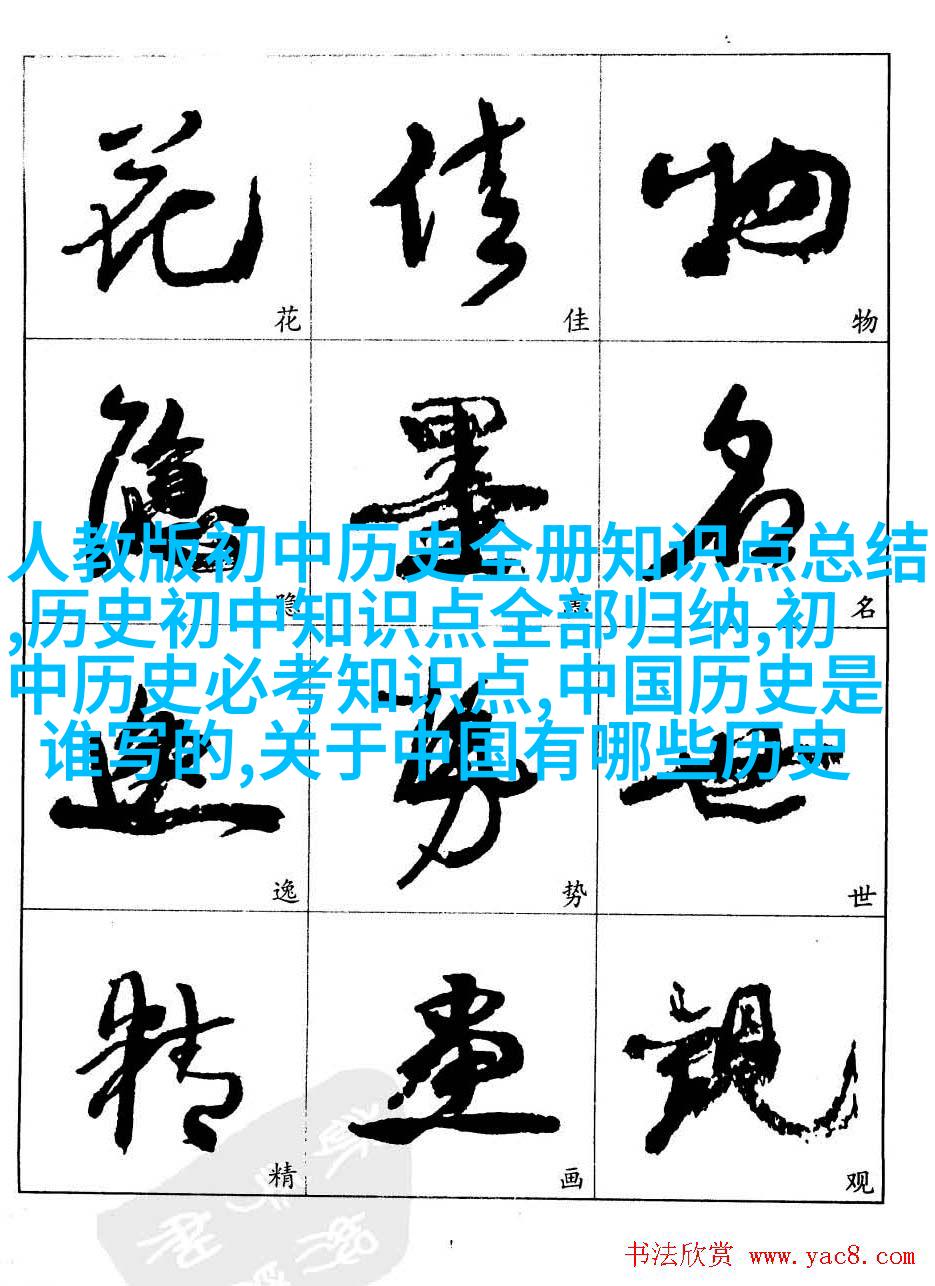 花 佳 物
隐 墨 名
人教版初中历史全册知识点总结
,历史初中知识点全部归纳,初
中历史必考知识点,中国历史是
谁写的,关于中国有哪些历史
逸 势 世
精 画 观
书法欣赏 www.yac8.com